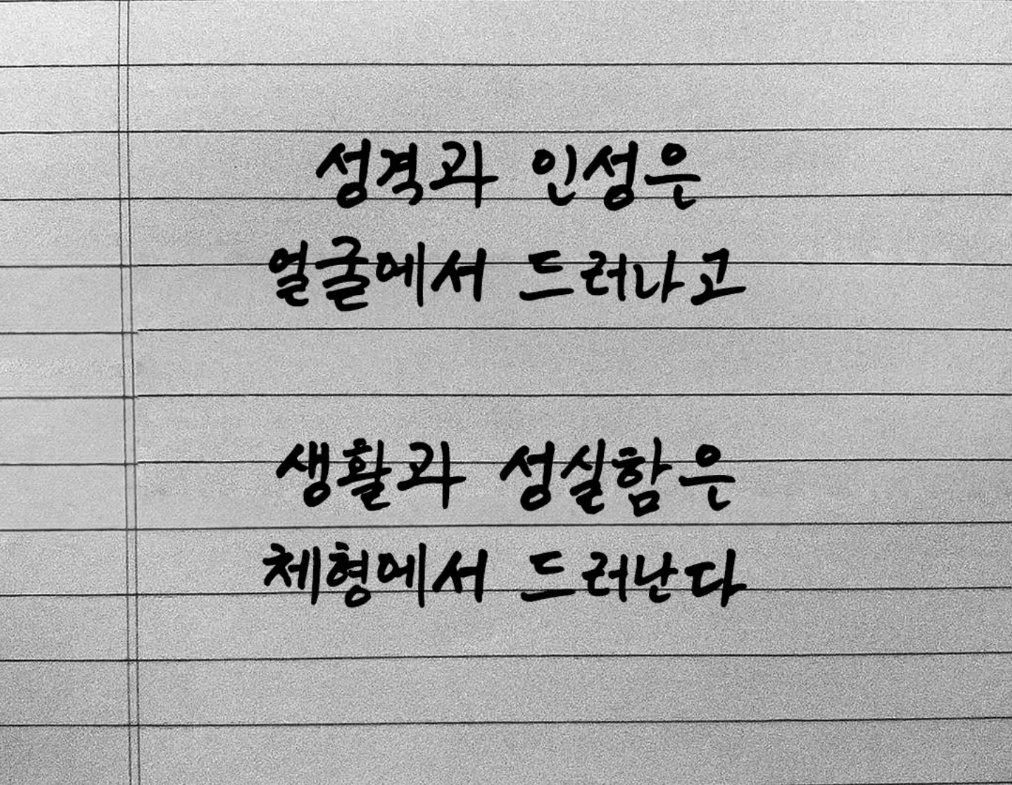 성격과 인성은
얼굴에서 드러나고
생활과 성실함은
체형에서 드러난다